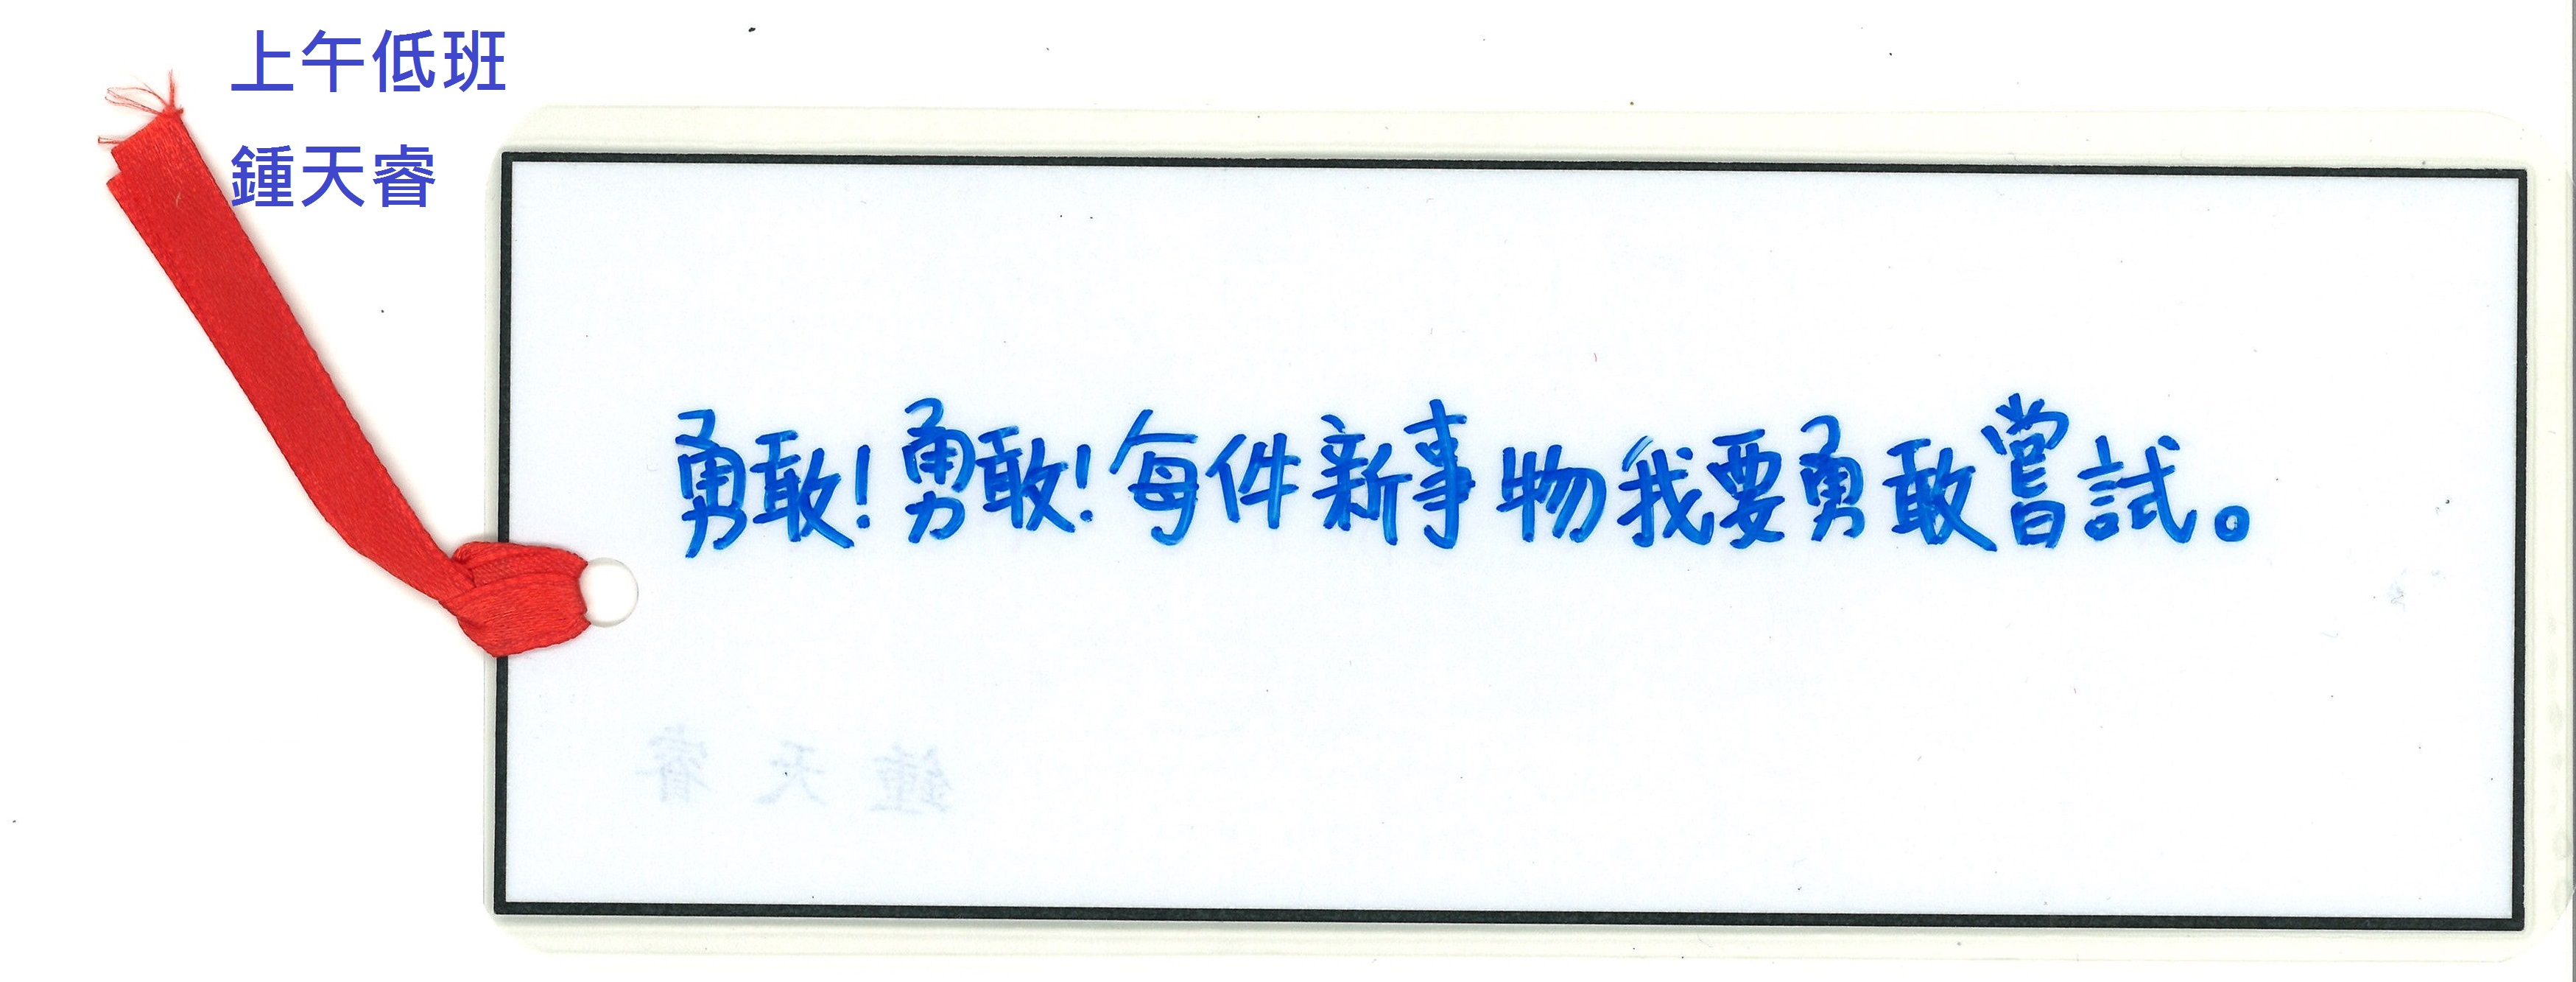 上午低班
鍾天睿
勇敢！勇敢！每件新事物我要勇敢嘗試。
鍾天睿